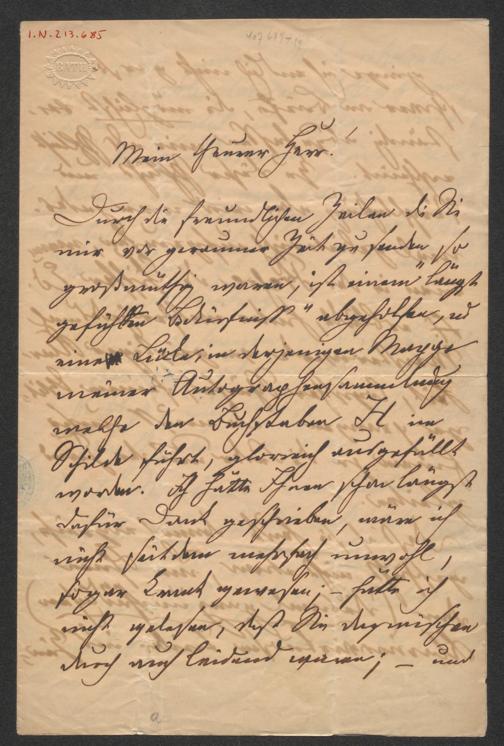 I.N. 213.685
BATH
Mein theurer Herr!
Durch die freundlichen Zeilen die Sie
mir vor geraumer Zeit zu senden so
großmüthig waren, ist einem "längst
gefühlten Bedürfniß" abgeholfen, und
eine Lücke, in derjenigen Mappe
meiner Autographensammlung
welche den Buchstaben H im
Schilde führt, glorreich ausgefüllt
worden. Ich hätte Ihnen schon längst
dafür Dank geschrieben, wäre ich
nicht seitdem mehrfach unwohl,
sogar krank gewesen; – hätte ich
nicht gelesen, daß Sie dazwischen
durch auch leidend waren; – und
a